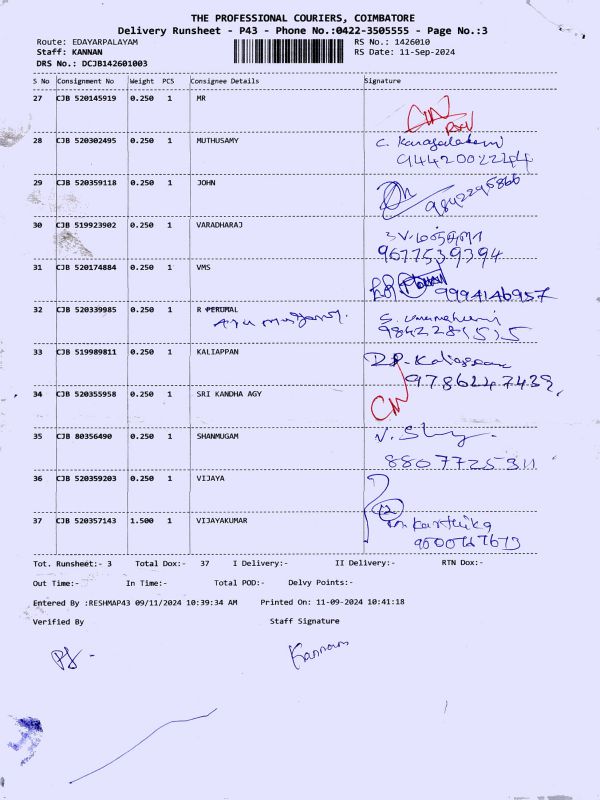 THE PROFESSIONAL COURIERS, COIMBATORE
Delivery Runsheet - P43 - Phone No.:0422-3505555 - Page No.:3
Route: EDAYARPALAYAM RS No.: 1426010
Staff: KANNAN RS Date: 11-Sep-2024
DRS No.: DCJB142601003
S No Consignment No Weight PCS Consignee Details Signature
27 CJB 520145919 0.250 1 MR
28 CJB 520302495 0.250 1 MUTHUSAMY
29 CJB 520359118 0.250 1 JOHN
9842295866
30 CJB 519923902 0.250 1 VARADHARAJ
9677539394
31 CJB 520174884 0.250 1 VMS
9994146957
32 CJB 520339985 0.250 1 R PERUMAL
33 CJB 519989811 0.250 1 KALIAPPAN
34 CJB 520355958 0.250 1 SRI KANDHA AGY
35 CJB 80356490 0.250 1 SHANMUGAM
8807725311
36 CJB 520359203 0.250 1 VIJAYA
37 CJB 520357143 1.500 1 VIJAYAKUMAR
Karthika
Tot. Runsheet:- 3 Total Dox:- 37 I Delivery:- II Delivery:- RTN Dox:-
Out Time:- In Time:- Total POD:- Delvy Points:-
Entered By :RESHMAP43 09/11/2024 10:39:34 AM Printed On: 11-09-2024 10:41:18
Verified By Staff Signature
Kannan